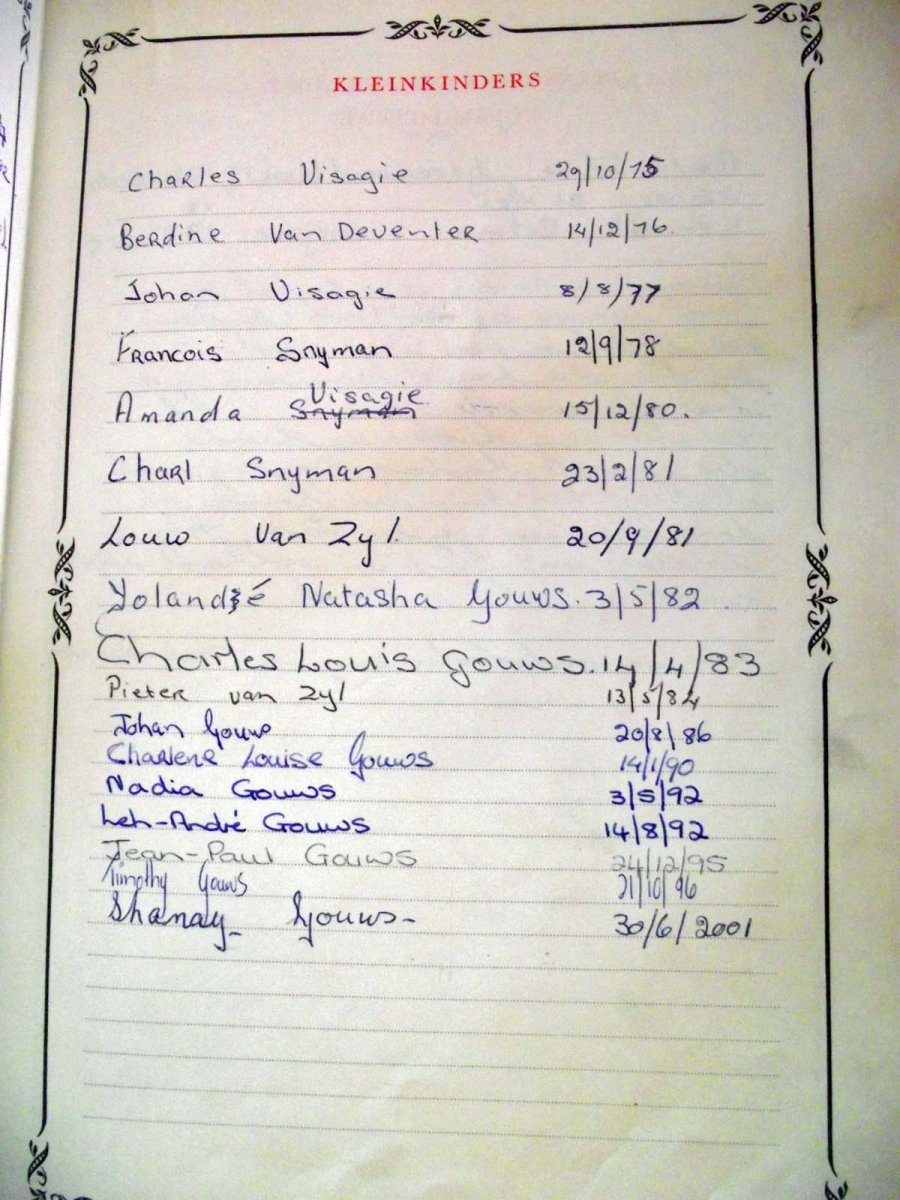 KLEINKINDERS
Charles Visagie 29/10/75
Berdine Van Deventer 14/12/76.
Johan Visagie 8/8/77
Francois Snyman 12/9/78
Visagie
Amanda Snyman 15/12/80.
Charl Snyman 23/2/81
Louw Van Zyl. 20/9/81
Yolandé Natasha Gouws. 3/5/82
Charles Louis Gouws. 14/4/83
Pieter van Zyl 13/5/84
Johan Gouws 20/8/86
Charlene Louise Gouws 14/1/90
Nadia Gouws 3/5/92
Leh-André Gouws 14/8/92
Jean-Paul Gouws 24/12/95
Timothy Gouws 21/10/96
Shanay Gouws- 30/6/2001